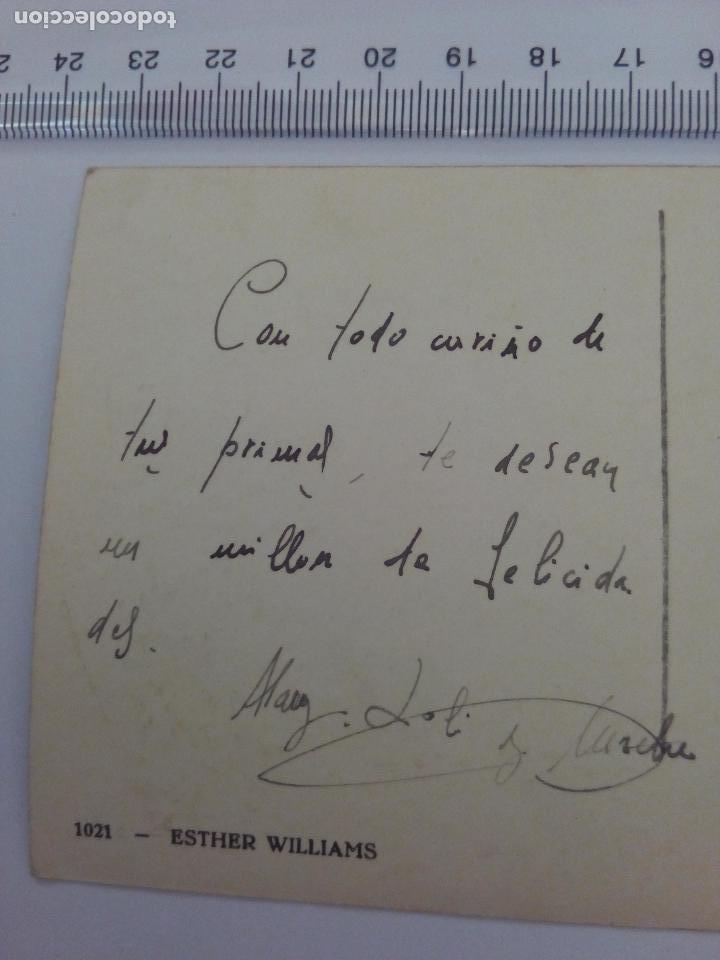 todocoleccion
24 23 22 21 20 19 18 17
Con todo cariño de
tus primas, te desean
un millon de felicida
des.
Mary. Loli
y
1021 — ESTHER WILLIAMS